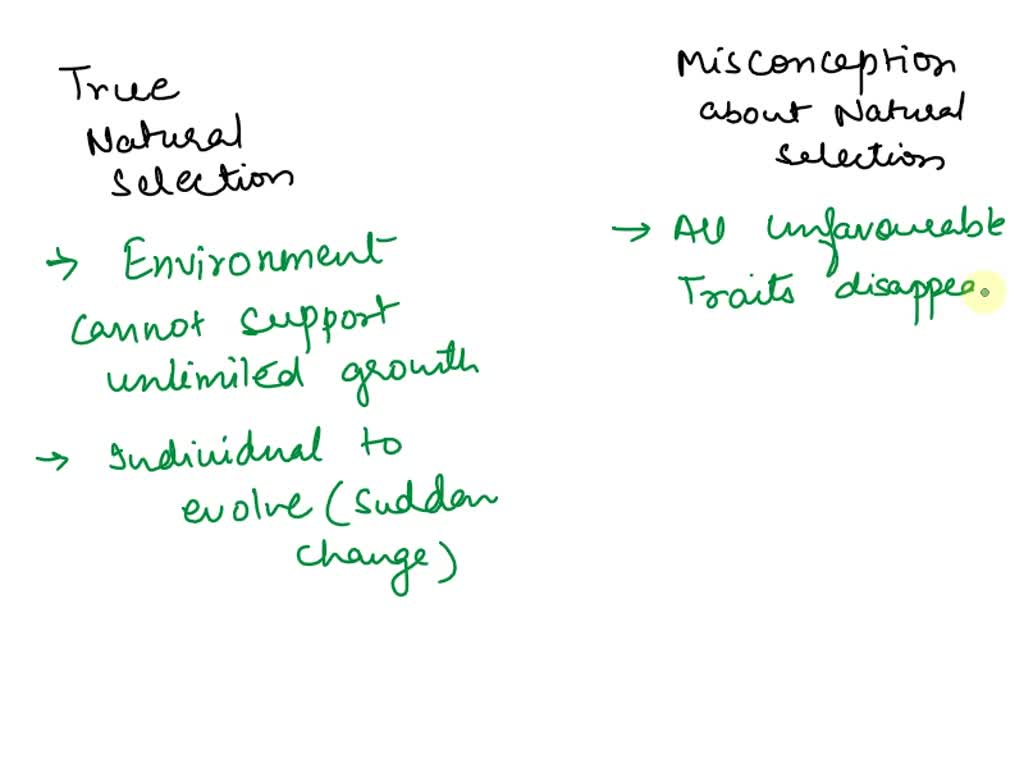 True
Natural
Selection
→ Environment
cannot support
unlimited growth
→ Individual to
evolve (Sudden
change)
Misconception
about Natural
Selection
→ All unfavourable
Traits disappea